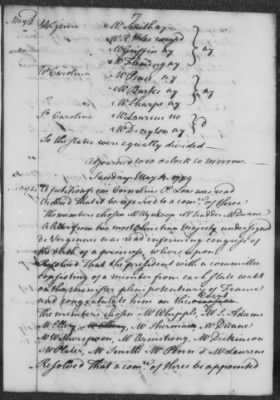 May 3
7
Virginia Mr Smith ay
Mr Griffin ay } ay
Mr Fleming ay
No Carolina Mr Penn ay
Mr Burke ay } ay
Mr Sharpe ay
So Carolina Mr Laurens no
Mr Drayton ay } d
So the states were equally divided
Adjourned to 10 o Clock to morrow.
Tuesday May 4. 1779
May 4. A petition from Cornelius P. Low was read
Ordered That it be referred to a comee of three
The members chosen Mr Wynkoop Mr Root Mr Duane
A letter from his most Christian majesty
de Vergennes was read informing congress of
the birth of a princess, whereupon
Resolved That the president with a committee
consisting of a member from each state wait
on the minister plenipotentiary of France
and congratulate him on this Event
The members chosen Mr Whipple, Mr S. Adams
Mr Ellery, Mr Sherman, Mr Duane
Mr Witherspoon, Mr Armstrong, Mr Dickinson
Mr Plater, Mr Smith Mr Penn & Mr Laurens
Resolved That a comee of three be appointed